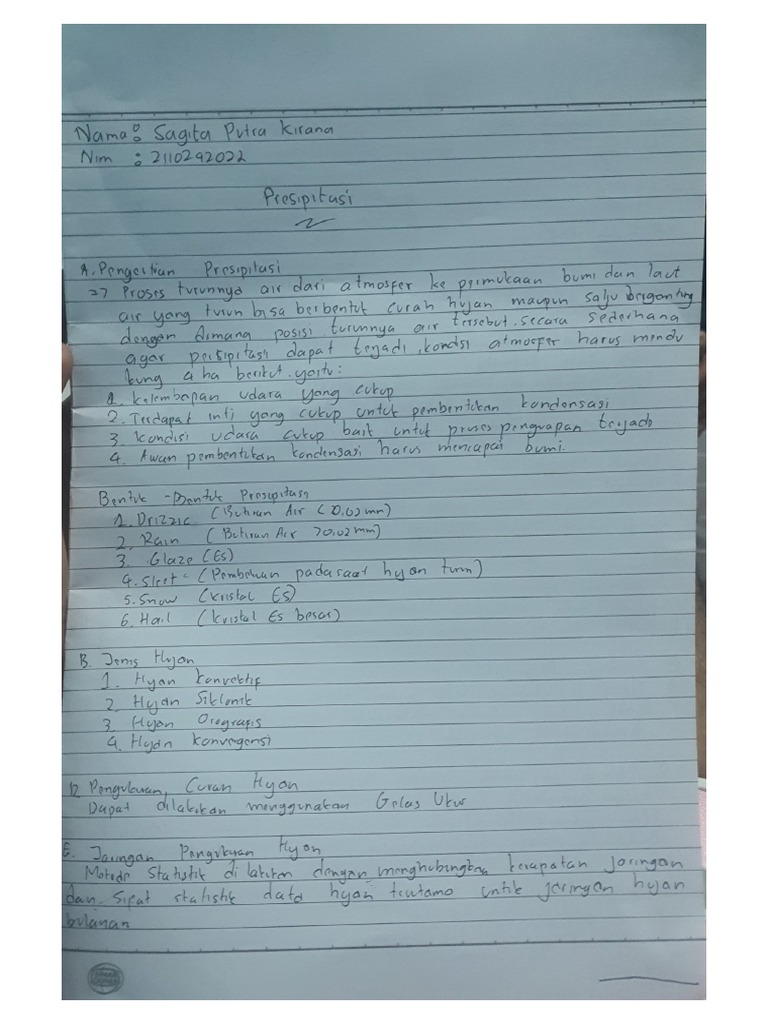 Nama : Sagita Putra Kirana
Nim : 2110292022
Presipitasi
A. Pengertian Presipitasi
=> Proses turunnya air dari atmosfer ke permukaan bumi dan laut
air yang turun bisa berbentuk curah hujan maupun salju bergantung
dengan dimana posisi turunnya air tersebut. secara sederhana
agar persipitasi dapat terjadi, kondisi atmosfer harus mendu
kung 4 ha berikut. yaitu:
1. kelembapan udara yang cukup
2. Terdapat inti yang cukup untuk pembentukan kondensasi
3. kondisi udara cukup baik untuk proses penguapan terjadi
4. Awan pembentukan kondensasi harus mencapai bumi.
Bentuk - Bentuk Presipitasi
1. Drizzle (Butiran Air < 0.02 mm)
2. Rain (Butiran Air > 0,02 mm)
3. Glaze (Es)
4. Sleet = (Pembekuan pada saat hujan turun)
5. Snow (kristal Es)
6. Hail (kristal Es besar)
B. Jenis Hujan
1. Hujan konvektif
2. Hujan Siklonik
3. Hujan Orografis
4. Hujan konvergensi
D. Pengukuran, Curah Hujan
Dapat dilakukan menggunakan Gelas Ukur
E. Jaringan Pengukuran Hujan
Metode Statistik di lakukan dengan menghubungkan kerapatan jaringan
dan sifat statistik data hujan terutama untuk jaringan hujan
bulanan